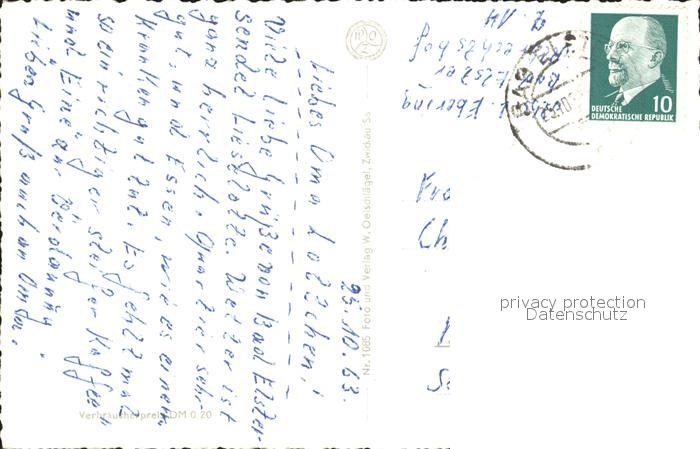 25.10.63.
Liebes Oma Lottchen!
Viele liebe Grüße von Bad Elster
sendet Lieselotte. Wetter ist
ganz herrlich. Quartier sehr
gut, und Essen, wie es einem
Kranken gut tut. Es fehlt mal
so ein richtiger steifer Kaffee
und Eine zur
Lieben Gruß auch an
Nr. 1085 Foto und Verlag W. Oelschlägel, Zwickau Sa
Verbraucherpreis DM 0.20
Abs. L. Ebering
Bad Elster
BAD
25.10
DEUTSCHE
DEMOKRATISCHE REPUBLIK
10
Fra
Ch
privacy protection
Datenschutz